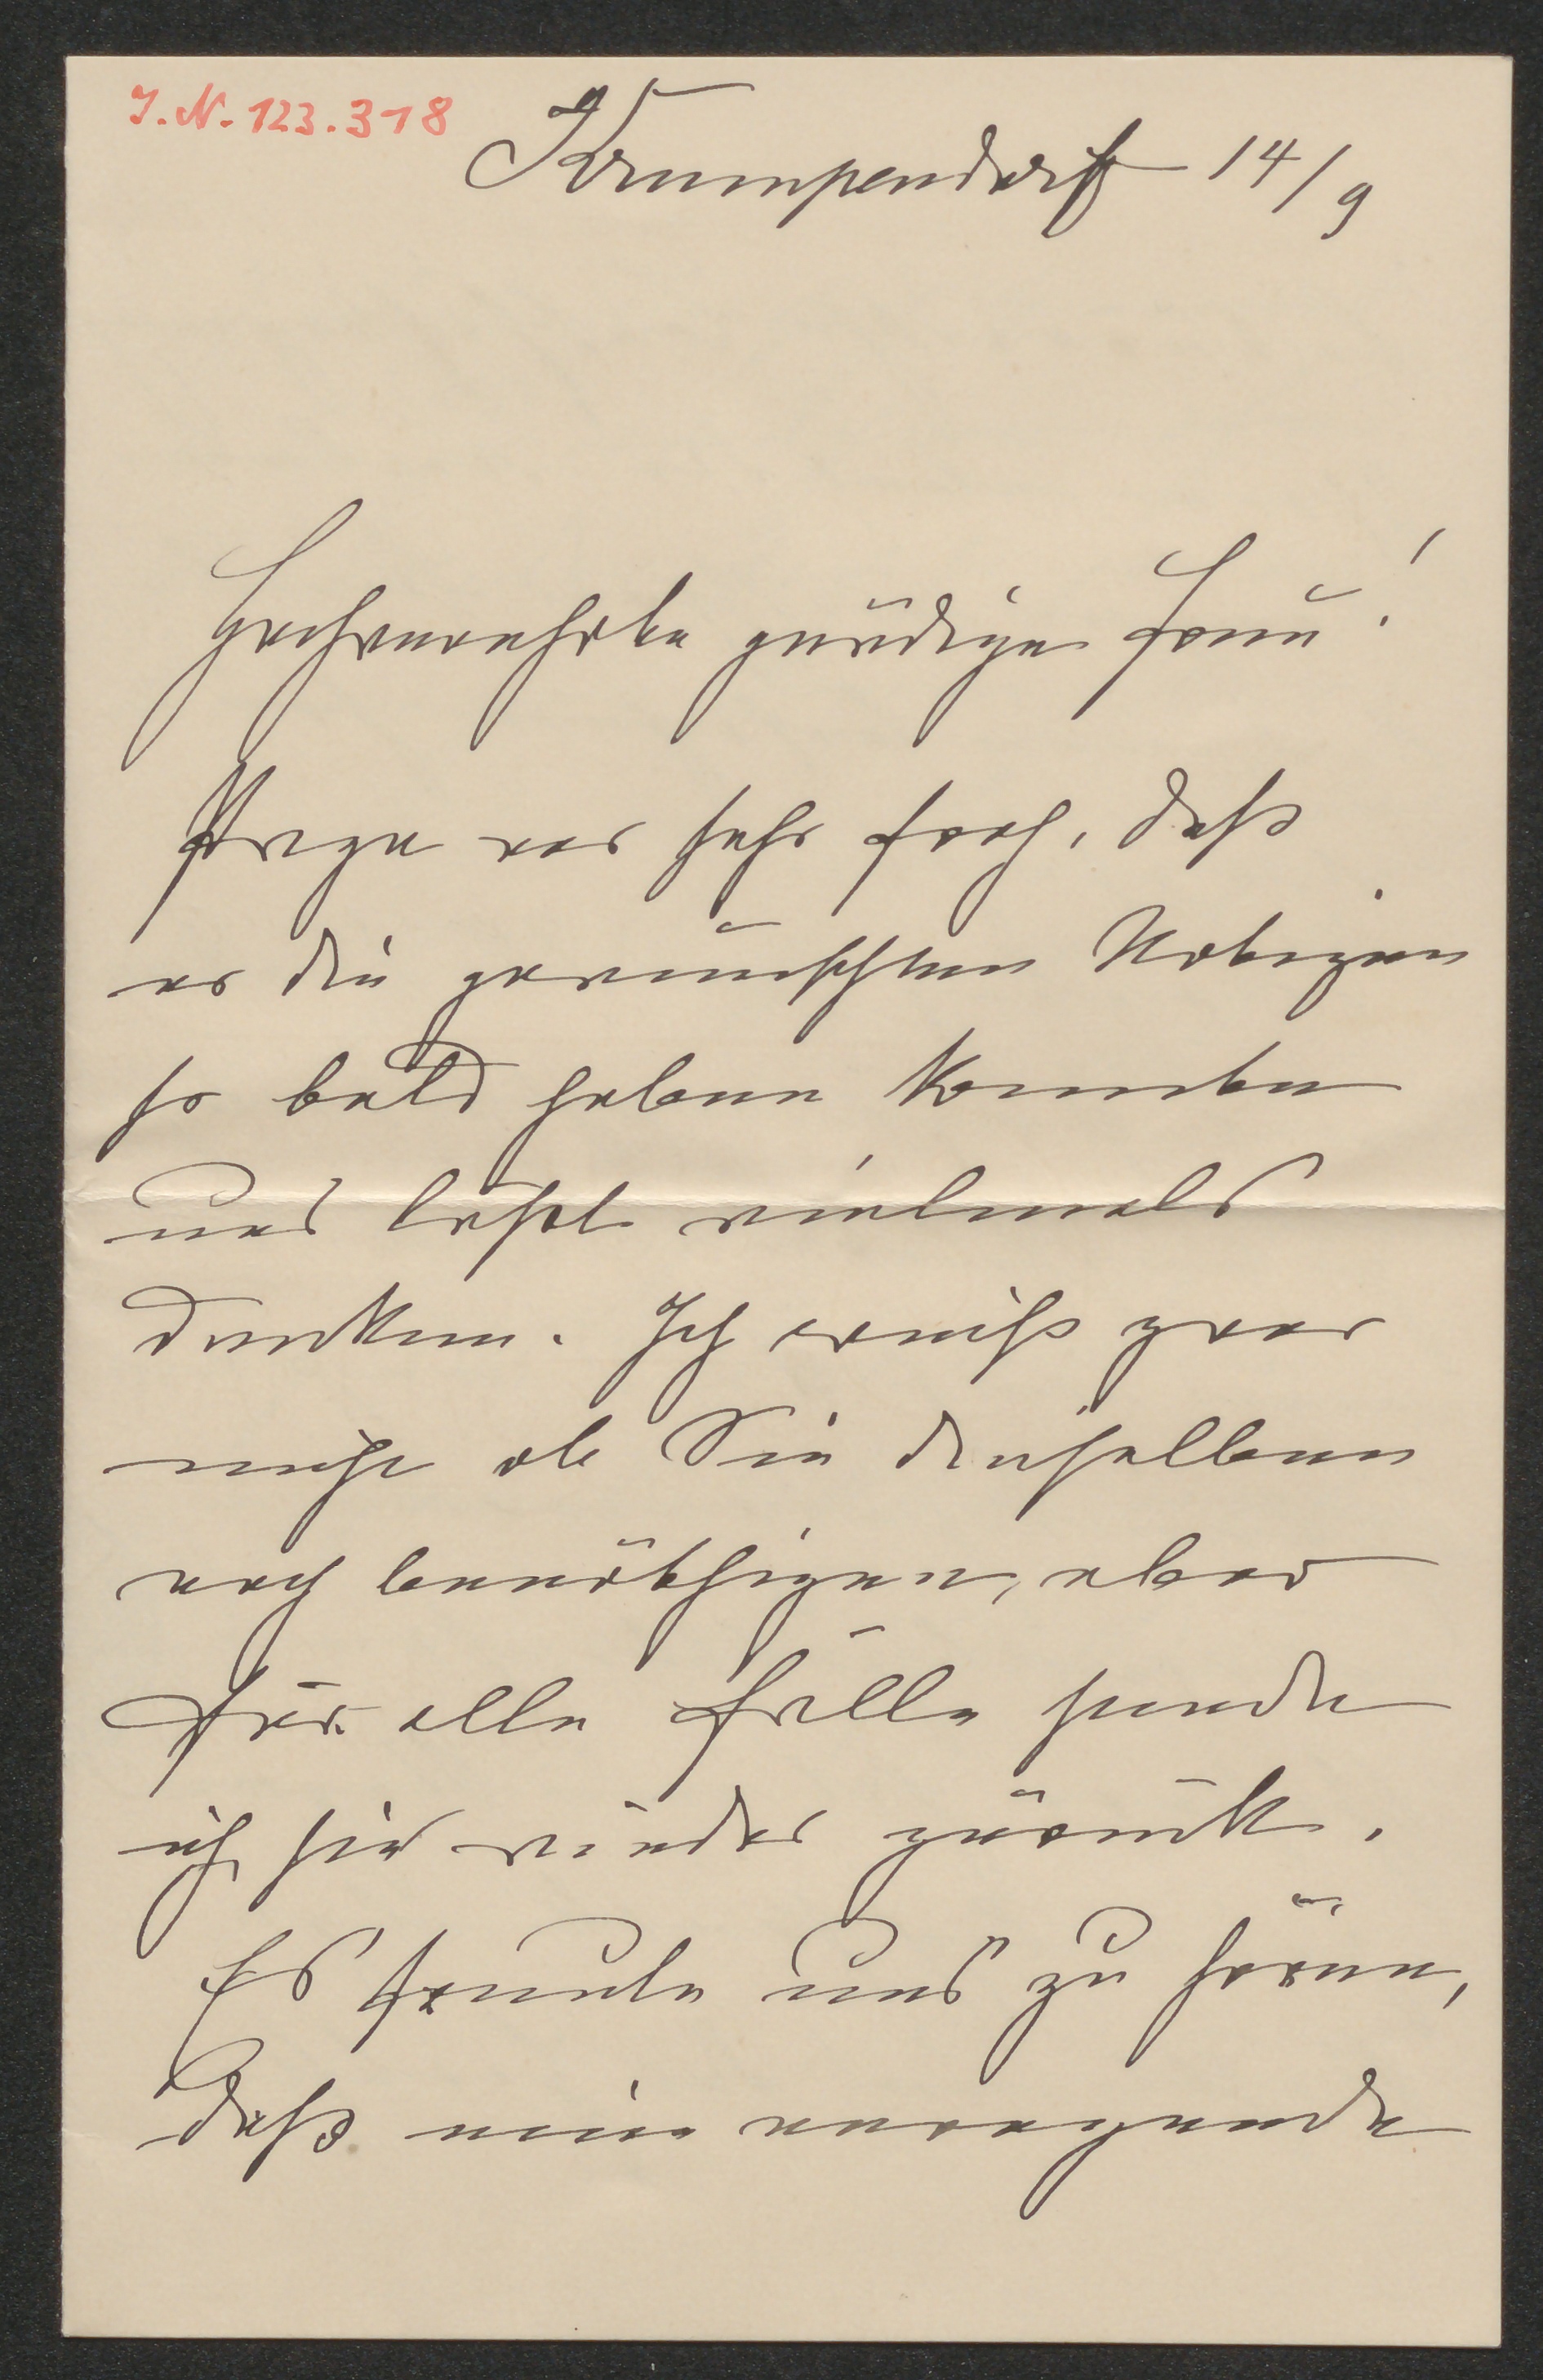 J.N. 123.318
Krumpendorf 14/9
Hochverehrte gnädige Frau!
Hugo war sehr froh, daß
er die gewünschten Notizen
so bald haben konnte
und läßt vielmals
danken. Ich weiß zwar
nicht ob Sie dieselben
noch benöthigen, aber
für alle Fälle sende
ich sie wieder zurück.
Es freute uns zu hören,
daß eine anregende